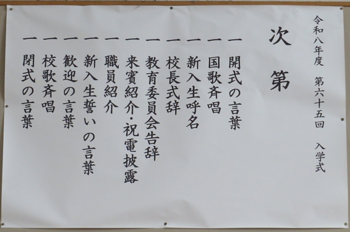 令和八年度 第六十五回 入学式
次第
一 開式の言葉
一 国歌斉唱
一 新入生呼名
一 校長式辞
一 教育委員会告辞
一 来賓紹介・祝電披露
一 職員紹介
一 新入生誓いの言葉
一 歓迎の言葉
一 校歌斉唱
一 閉式の言葉